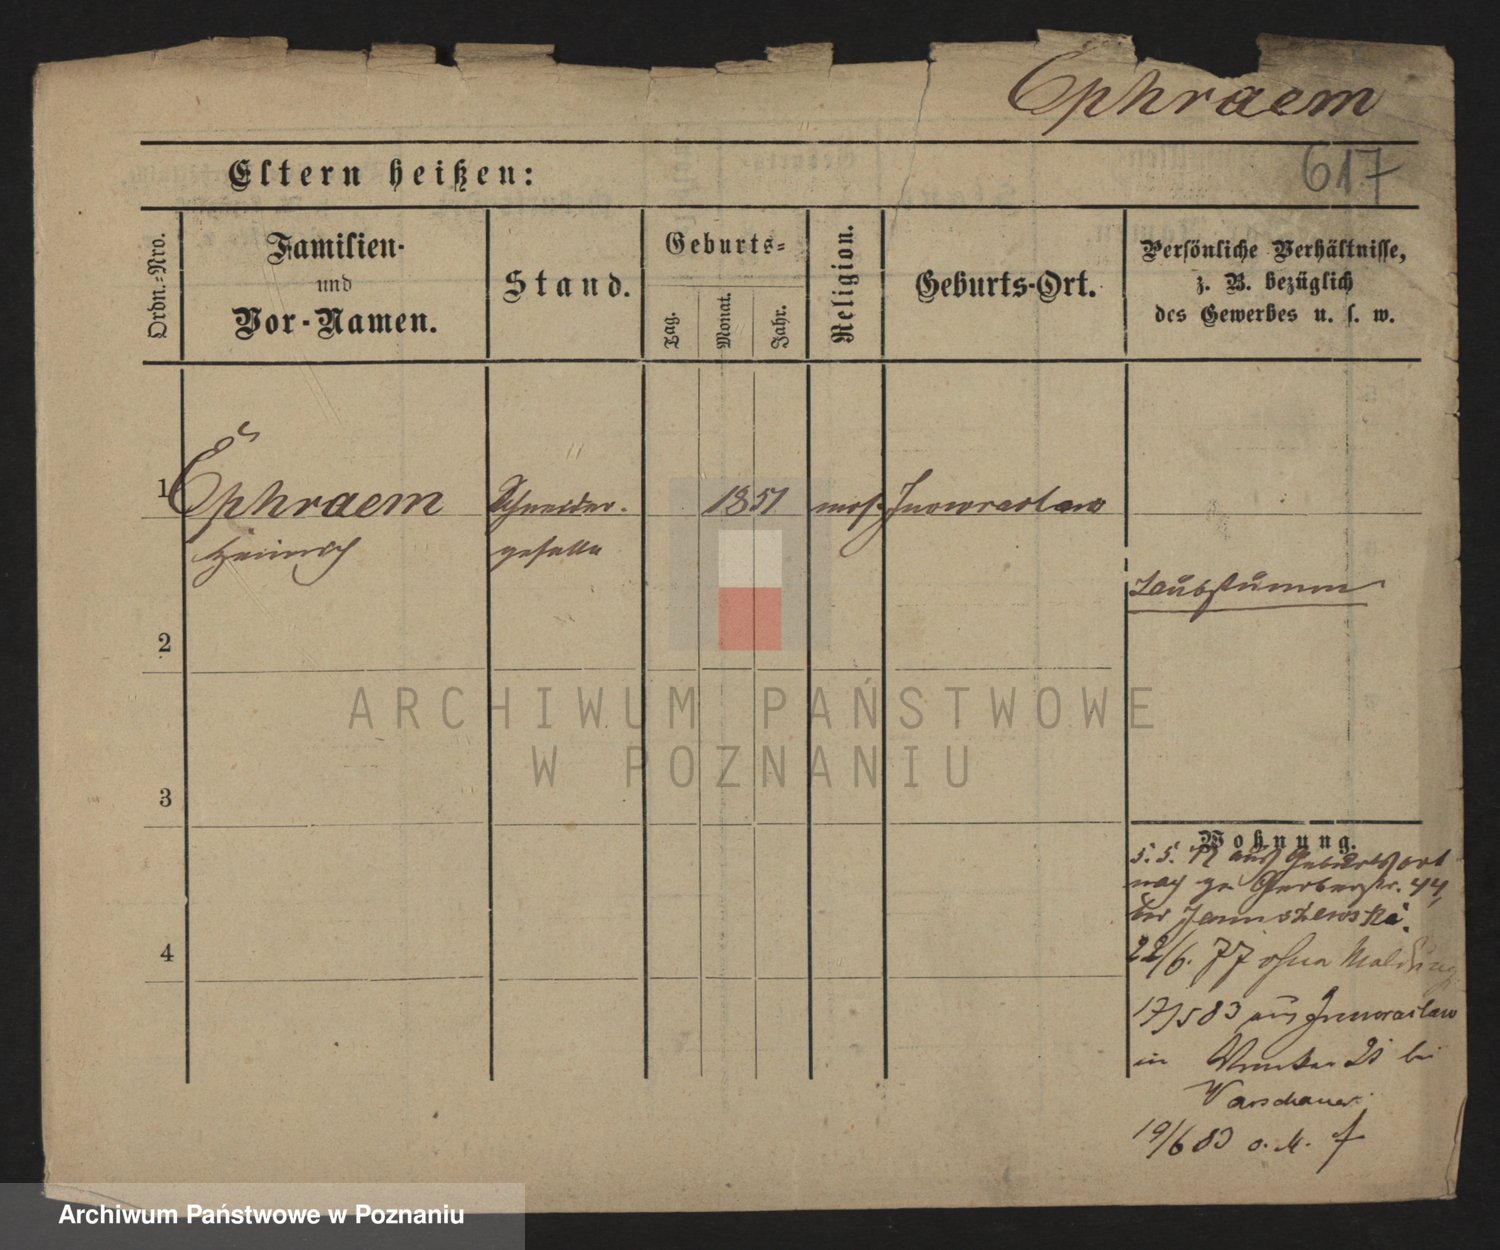 Ephraem
617
Eltern heißen:
Ordn.-Nro.
Familien-
und
Vor-Namen.
Stand.
Geburts-
Tag.
Monat.
Jahr.
Religion.
Geburts-Ort.
Persönliche Verhältnisse,
z. B. bezüglich
des Gewerbes u. s. w.
1 Ephraem Schneider- 1851 mos. Inowraclaw
Heinrich geselle
Taubstumm
2
3
4
Wohnung.
5. 5. aus Geburtsort
nach Gerberstr. 44,
bei Januszewski.
22/6. 77 ohne Meldung
17/5 83 aus Inowraclaw
in 21 bei
Warschauer
19/6 83 o. M. f
ARCHIWUM PAŃSTWOWE
W POZNANIU
Archiwum Państwowe w Poznaniu